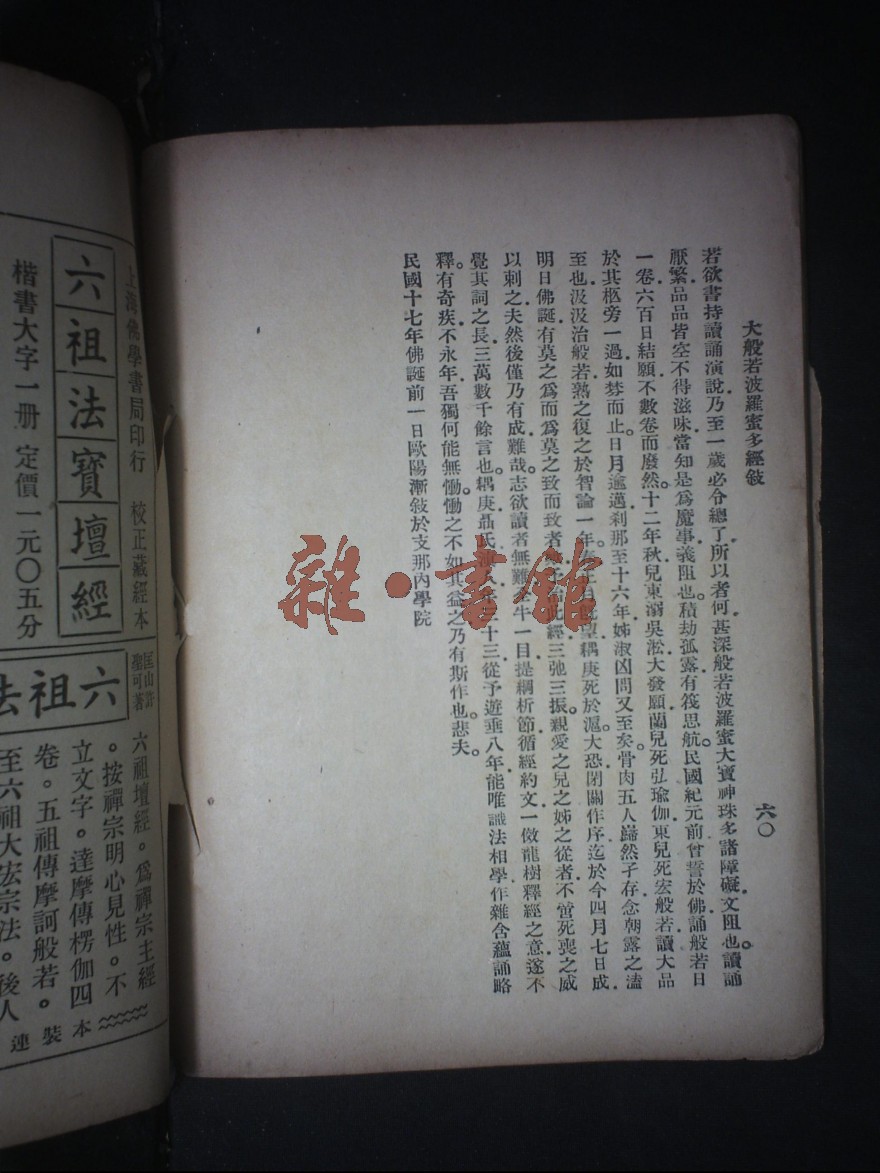 大般若波羅蜜多經敍
六〇
若欲書持讀誦演說乃至一歲必令總了所以者何甚深般若波羅蜜大寶神珠多諸障礙文阻也讀誦
厭繁品品皆空不得滋味當知是爲魔事義阻也積劫孤露有筏思航民國紀元前曾誓於佛誦般若日
一卷六百日結願不數卷而廢然十二年秋兒東溺吳淞大發願蘭兒死弘瑜伽東兒死宏般若讀大品
於其柩旁一過如棼而止日月逾邁刹那至十六年姊淑凶問又至矣骨肉五人巋然孑存念朝露之溘
至也汲汲治般若熟之復之於智論一年。 耦庚死於滬大恐閉關作序迄於今四月七日成
明日佛誕有莫之爲而爲莫之致而致者 此經三弛三振親愛之兒之姊之從者不啻死喪之威
以刺之夫然後僅乃有成難哉。志欲讀者無難 牛一目提綱析節循經約文一倣龍樹釋經之意遂不
覺其詞之長三萬數千餘言也耦庚聶氏 三十三從予遊垂八年能唯識法相學作雜含蘊誦略
釋。有奇疾不永年吾獨何能無慟慟之不如其益之乃有斯作也。悲夫。
民國十七年佛誕前一日歐陽漸敍於支那內學院
雜·書館
上海佛學書局印行 校正藏經本
六祖法寶壇經
楷書大字一册 定價一元〇五分
匡山許
聖可著
六祖法
六祖壇經。爲禪宗主經
。按禪宗明心見性。不
立文字。達摩傳楞伽四
卷。五祖傳摩訶般若。
至六祖大宏宗法。後人
本裝連